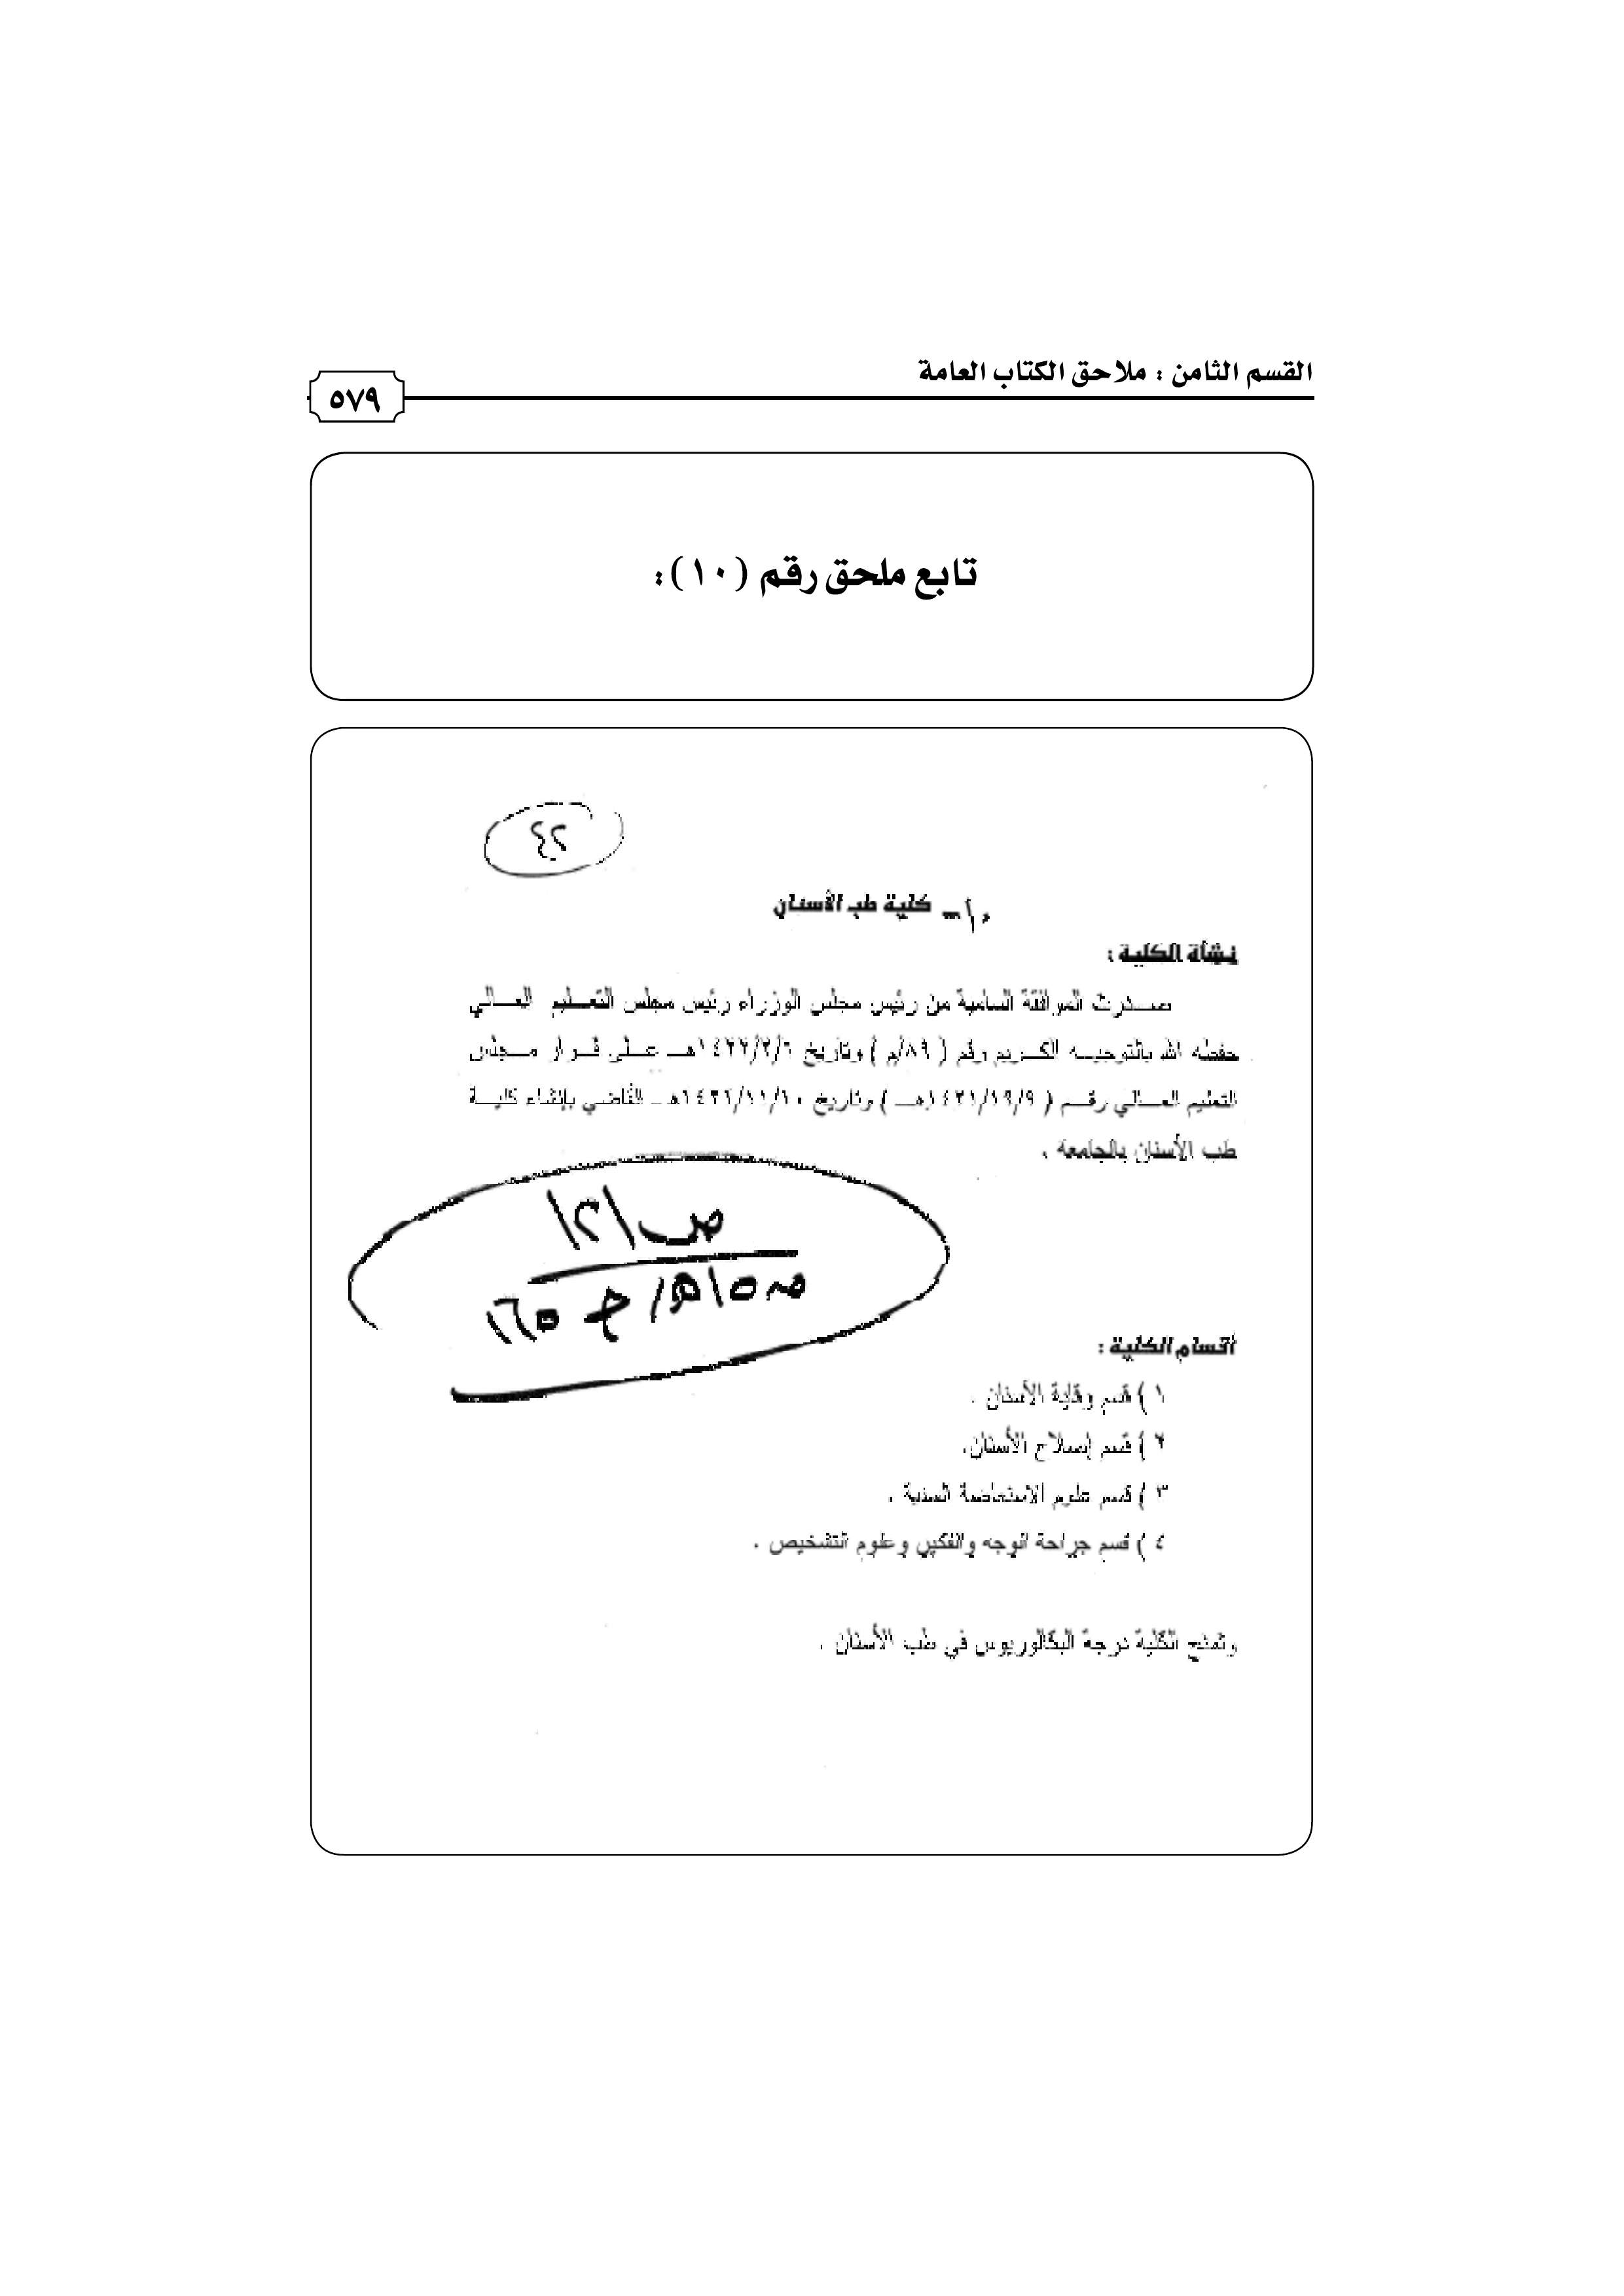 القسم الثامن : ملاحق الكتاب العامة
٥٧٩
تابع ملحق رقم (١٠):
٤٢
١٠- كلية طب الأسنان
نشأة الكلية :
صدرت الموافقة السامية من رئيس مجلس الوزراء رئيس مجلس التعليم العالي
حفظه الله بالتوجيه الكريم رقم ( ٨٩/م ) وتاريخ ١٤٢٢/٢/٦هـ على قرار مجلس
التعليم العالي رقم ( ١٤٢١/١٩/٩هـ ) وتاريخ ١٤٢١/١١/١٠هـ القاضي بإنشاء كلية
طب الأسنان بالجامعة .
ص ١٢١
١٦٥
أقسام الكلية :
١ ) قسم وقاية الأسنان .
٢ ) قسم إصلاح الأسنان.
٣ ) قسم علوم الاستعاضة السنية .
٤ ) قسم جراحة الوجه والفكين وعلوم التشخيص .
وتمنح الكلية درجة البكالوريوس في طب الأسنان .